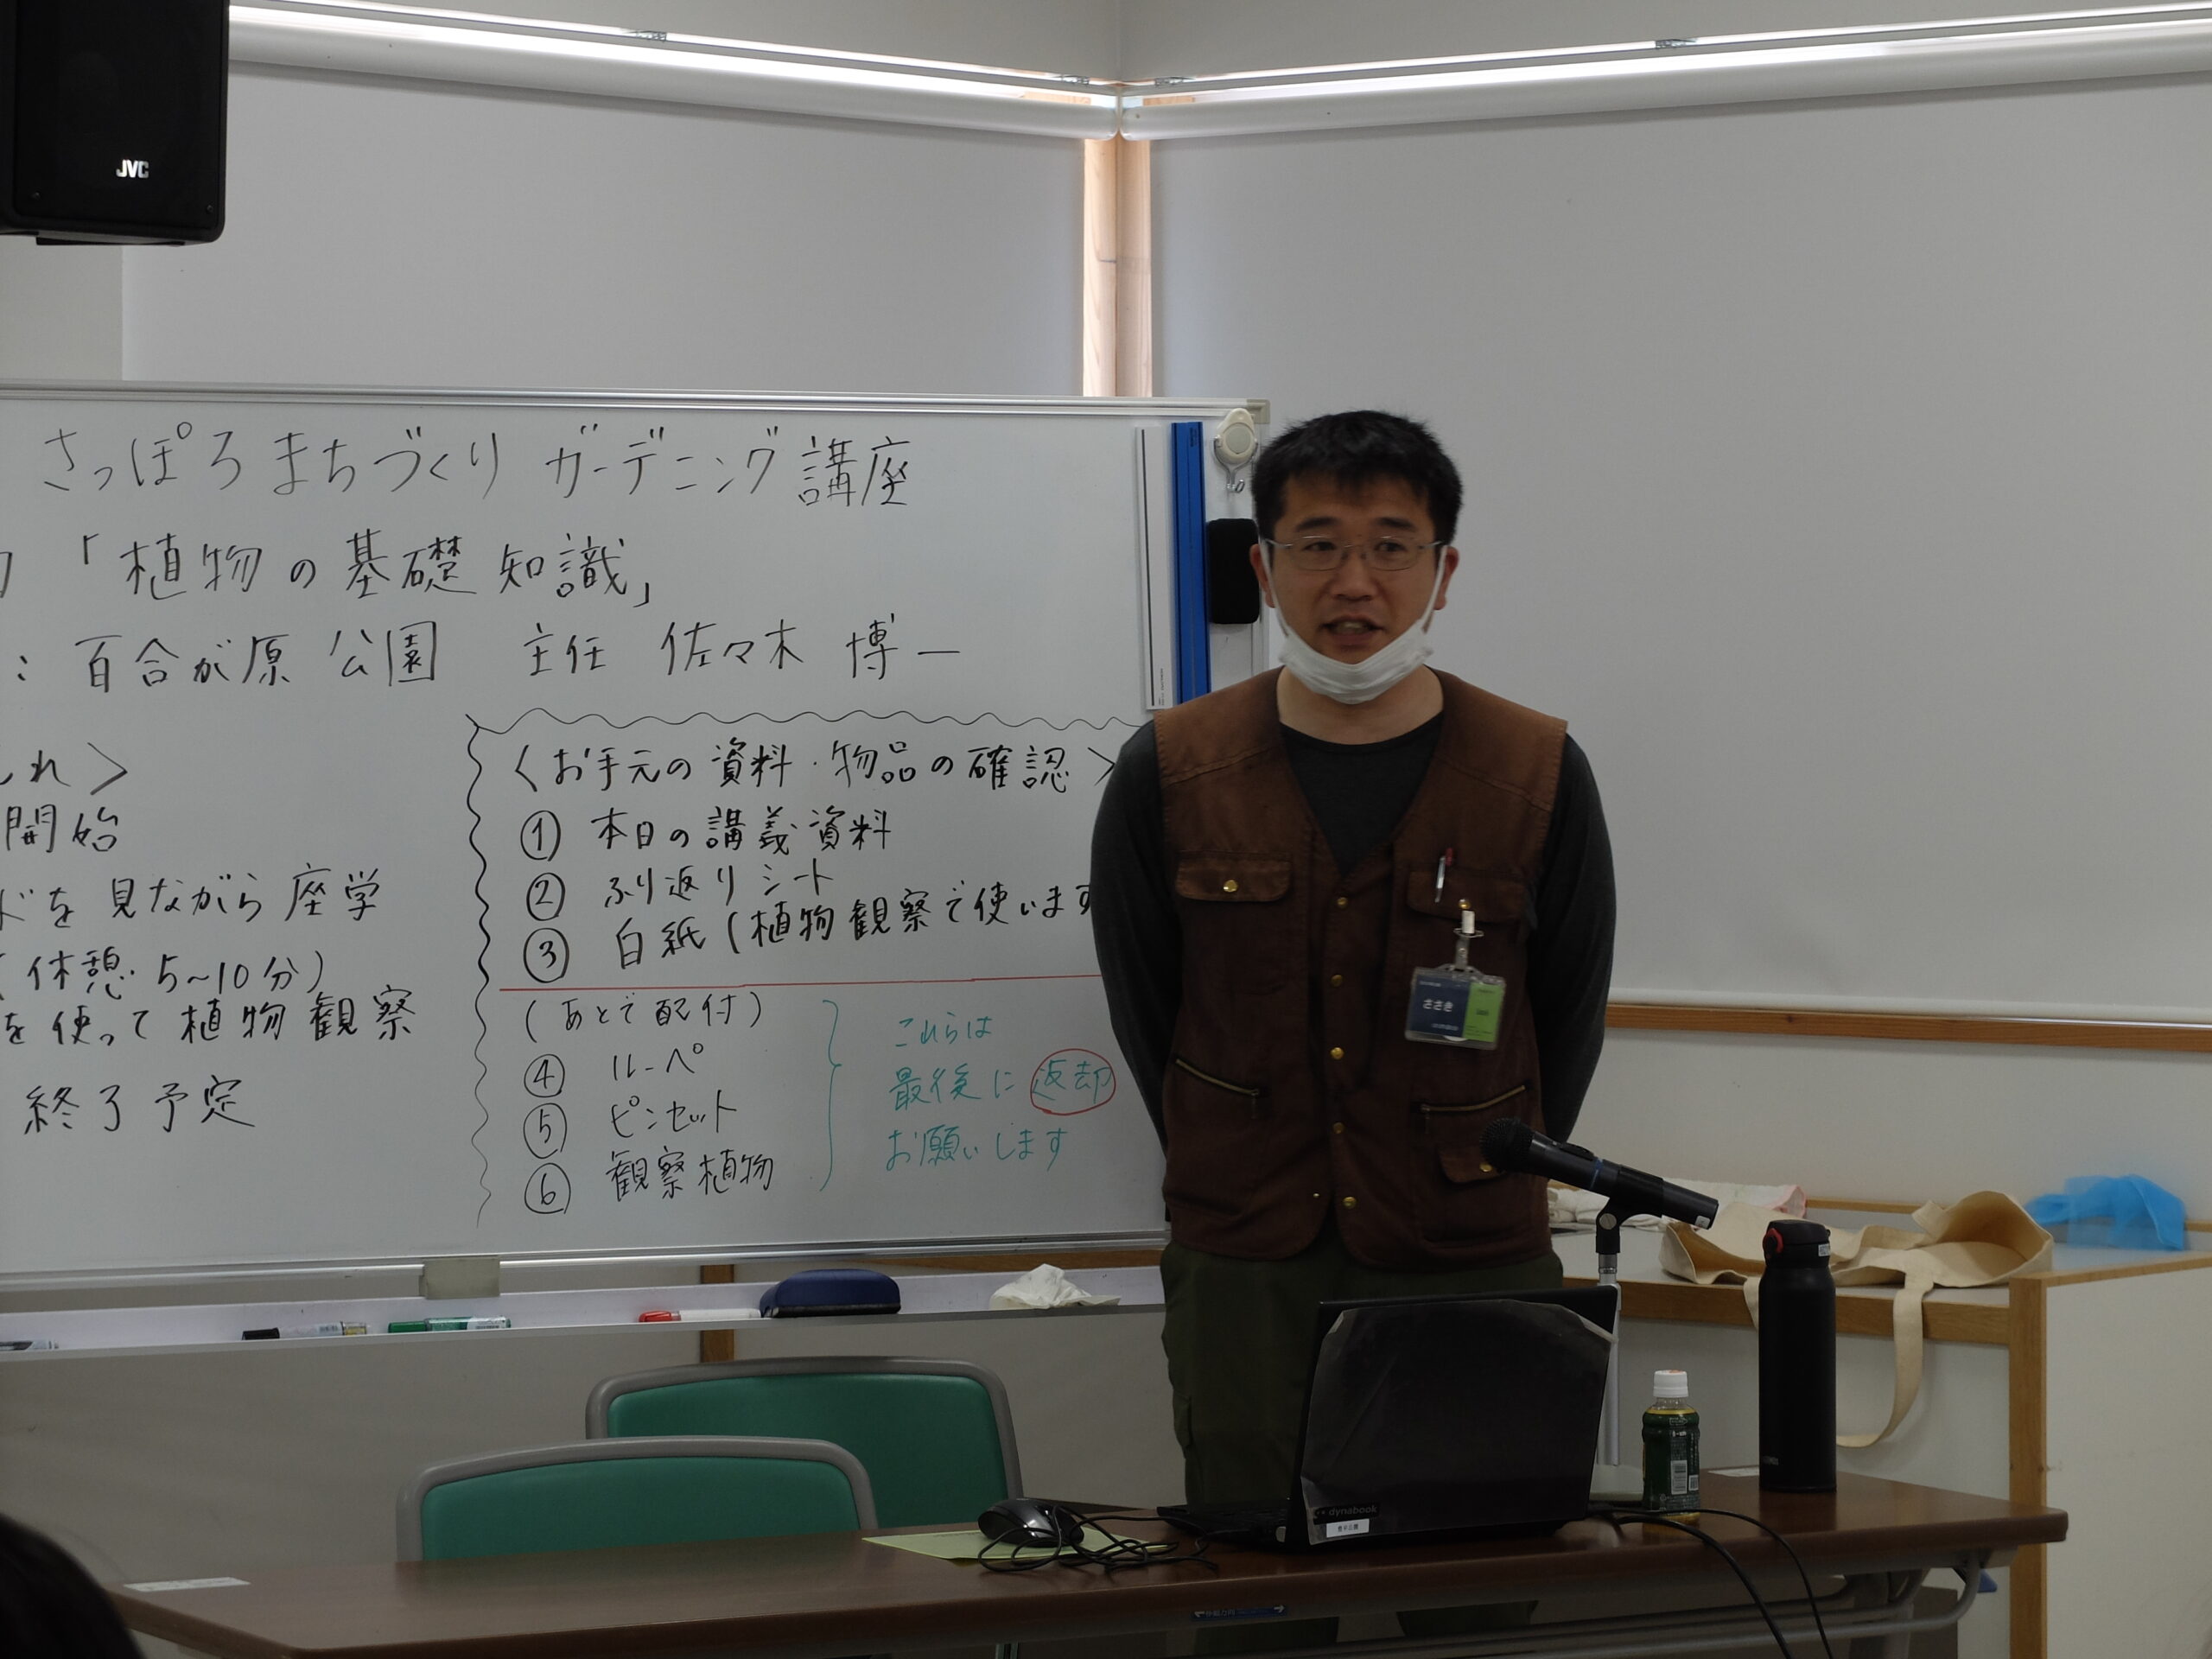 JVC
さっぽろまちづくり ガーデニング講座
「植物の基礎知識」
: 百合が原公園 主任 佐々木 博一
れ>
開始
ドを見ながら座学
(休憩 5~10分)
を使って植物観察
終了予定
<お手元の資料・物品の確認>
① 本日の講義資料
② ふり返りシート
③ 白紙(植物観察で使います
(あとで配付)
④ ルーペ
⑤ ピンセット
⑥ 観察植物
これらは
最後に返却
お願いします
ささき
dynabook